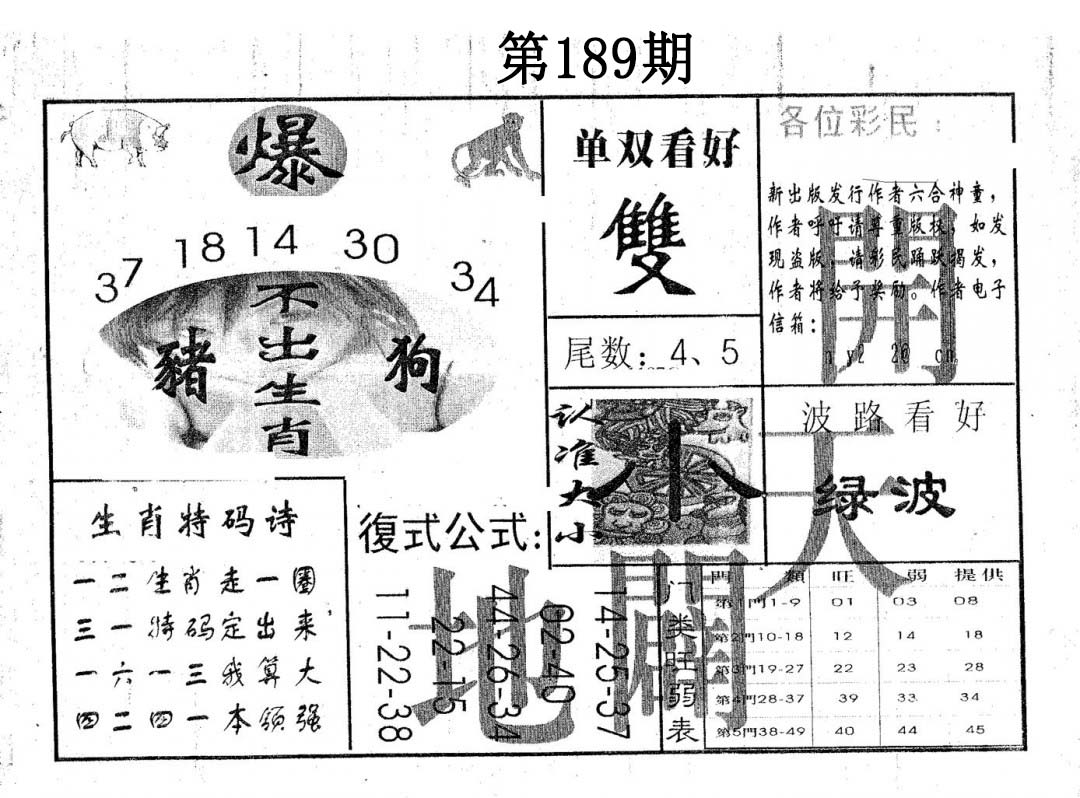 第189期
爆
37 18 14 30 34
不出生肖
豬
狗
单双看好
雙
尾数：4、5
各位彩民：
新出版发行作者六合神童，
作者呼吁请尊重版权；如发
现盗版、请彩民踊跃揭发，
作者将给予奖励。作者电子
信箱：
開
认准大小
小
波路看好
绿波
天
生肖特码诗
一二生肖走一圈
三一特码定出来，
一六一三我算大
四二四一本领强
復式公式：
11-22-38
22-15
44-26-34
02-40
14-25-37
地
闢
门类旺弱表
門類 旺 弱 提供
第1門1-9 01 03 08
第2門10-18 12 14 18
第3門19-27 22 23 28
第4門28-37 39 33 34
第5門38-49 40 44 45